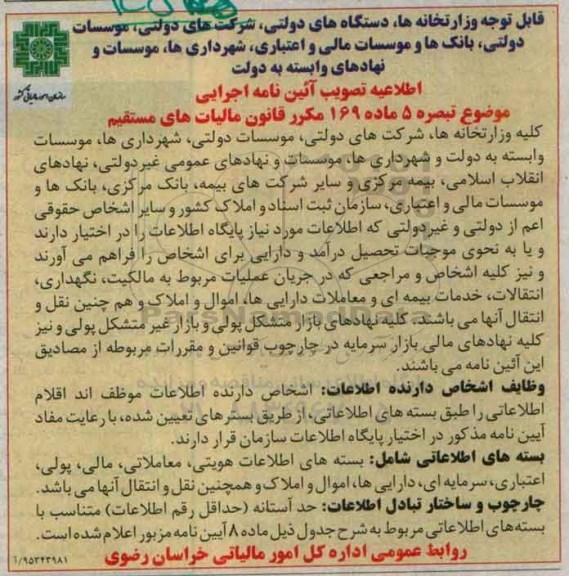 قابل توجه وزارتخانه ها، دستگاه های دولتی، شرکت های دولتی، موسسات
دولتی، بانک ها و موسسات مالی و اعتباری، شهرداری ها، موسسات و
نهادهای وابسته به دولت
سازمان امور مالیاتی کشور
اطلاعیه تصویب آئین نامه اجرایی
موضوع تبصره ۵ ماده ۱۶۹ مکرر قانون مالیات های مستقیم
کلیه وزارتخانه ها، شرکت های دولتی، موسسات دولتی، شهرداری ها، موسسات
وابسته به دولت و شهرداری ها، موسسات و نهادهای عمومی غیردولتی، نهادهای
انقلاب اسلامی، بیمه مرکزی و سایر شرکت های بیمه، بانک مرکزی، بانک ها و
موسسات مالی و اعتباری، سازمان ثبت اسناد و املاک کشور و سایر اشخاص حقوقی
اعم از دولتی و غیردولتی که اطلاعات مورد نیاز پایگاه اطلاعات را در اختیار دارند
و یا به نحوی موجبات تحصیل درآمد و دارایی برای اشخاص را فراهم می آورند
و نیز کلیه اشخاص و مراجعی که در جریان عملیات مربوط به مالکیت، نگهداری،
انتقالات، خدمات بیمه ای و معاملات دارایی ها، اموال و املاک و هم چنین نقل و
انتقال آنها می باشند، کلیه نهادهای بازار متشکل پولی و بازار غیر متشکل پولی و نیز
کلیه نهادهای مالی بازار سرمایه در چارچوب قوانین و مقررات مربوطه از مصادیق
این آئین نامه می باشند.
وظایف اشخاص دارنده اطلاعات: اشخاص دارنده اطلاعات موظف اند اقلام
اطلاعاتی را طبق بسته های اطلاعاتی، از طریق بسترهای تعیین شده، با رعایت مفاد
آیین نامه مذکور در اختیار پایگاه اطلاعات سازمان قرار دارند.
بسته های اطلاعاتی شامل: بسته های اطلاعات هویتی، معاملاتی، مالی، پولی،
اعتباری، سرمایه ای، دارایی ها، اموال و املاک و همچنین نقل و انتقال آنها می باشد.
چارچوب و ساختار تبادل اطلاعات: حد آستانه (حداقل رقم اطلاعات) متناسب با
بسته‌های اطلاعاتی مربوط به شرح جدول ذیل ماده ۸ آیین نامه مزبور اعلام شده است.
روابط عمومی اداره کل امور مالیاتی خراسان رضوی
۱/۹۵۳۴۳۹۸۱
ParsNamadData